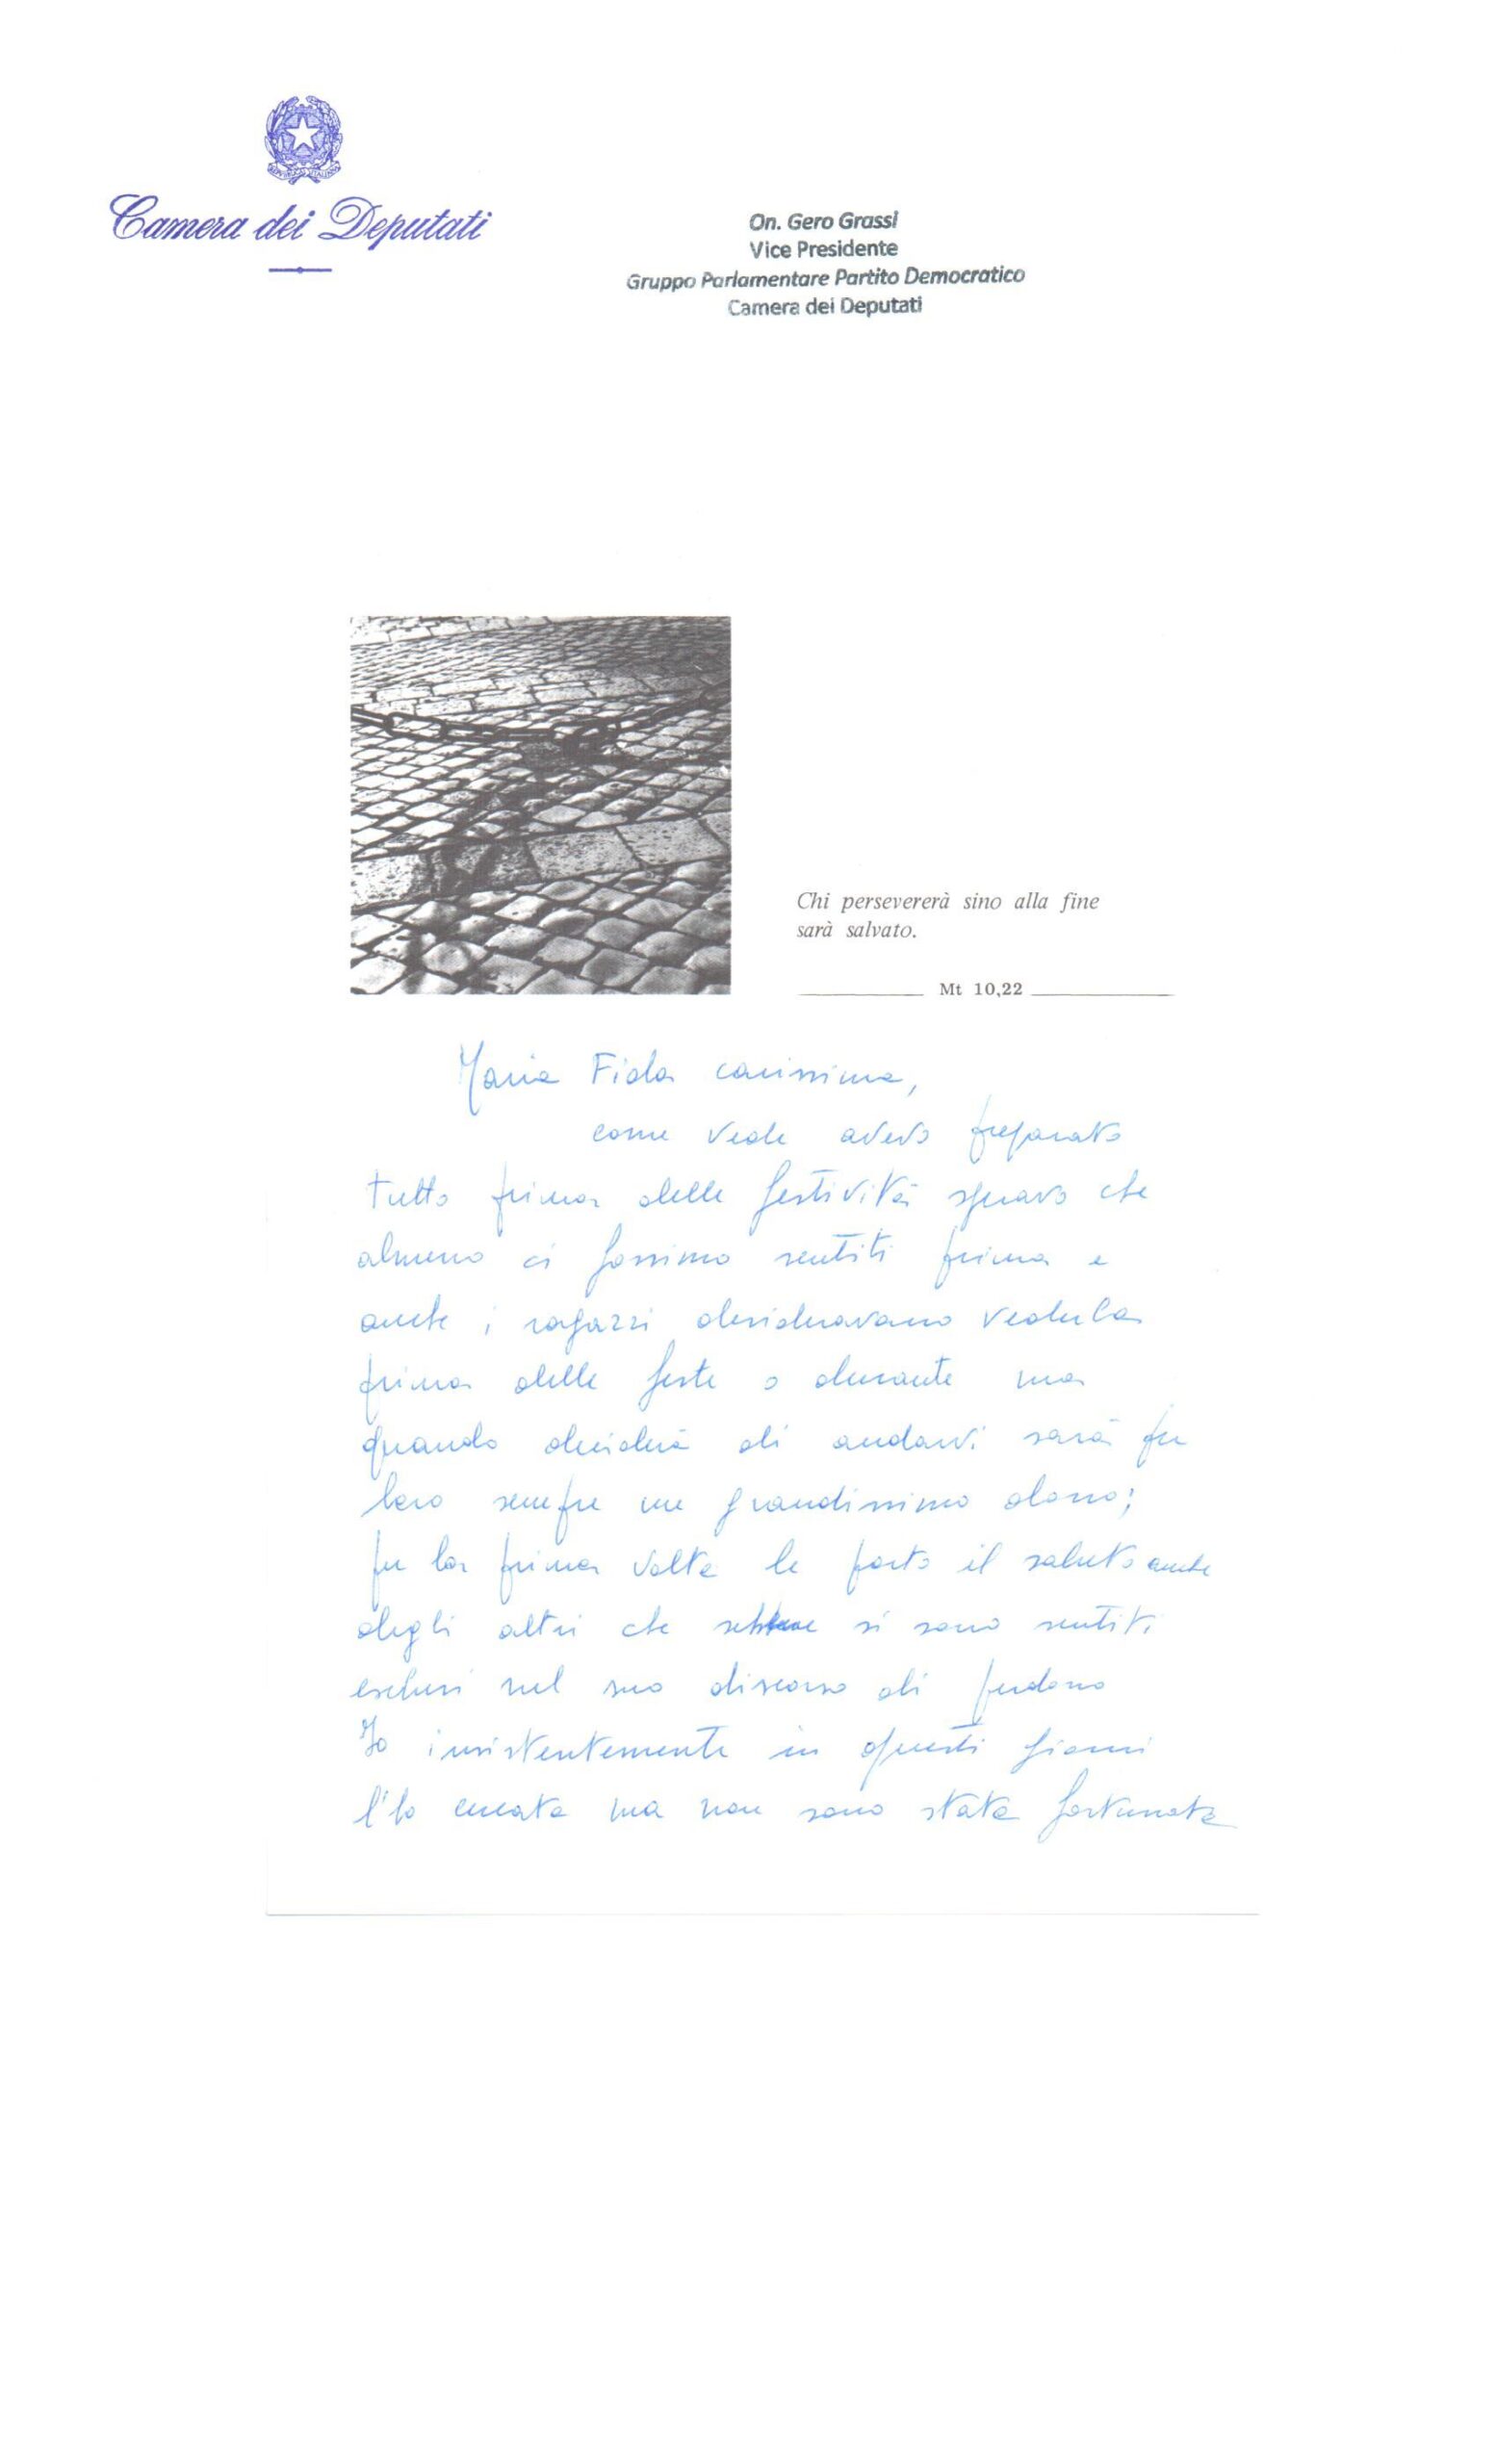 REPUBBLICA ITALIANA
Camera dei Deputati
On. Gero Grassi
Vice Presidente
Gruppo Parlamentare Partito Democratico
Camera dei Deputati
Chi persevererà sino alla fine
sarà salvato.
Mt 10,22
Maria Fida carissima,
come vede avevo preparato
tutto prima delle festività speravo che
almeno ci fossimo sentiti prima e
anche i ragazzi desideravano vederla
prima delle feste o durante ma
quando deciderà di andarvi sarà per
loro sempre un grandissimo dono;
per la prima volta le porto il saluto anche
degli altri che sebbene si sono sentiti
esclusi nel suo discorso di perdono
Io insistentemente in questi giorni
l'ho cercata ma non sono stata fortunata